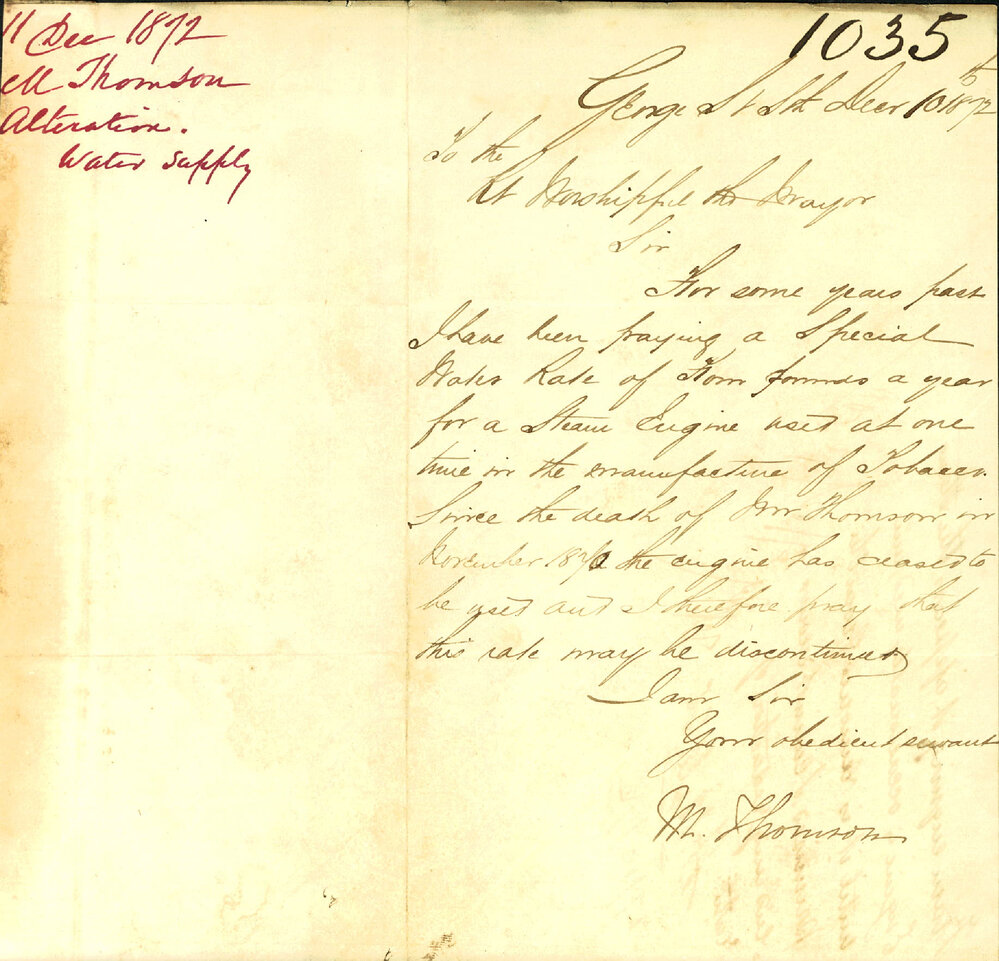 11 Dec 1872
M Thomson
Alteration.
Water Supply
1035
George St Sth Decr 10th 1872
To the
Rt Worshipful the Mayor
Sir
For some years past
I have been paying a Special
Water Rate of Four pounds a year
for a Steam Engine used at one
time in the manufacture of Tobacco.
Since the death of Mr Thomson in
November 1871 the engine has ceased to
be used and I therefore pray that
this rate may be discontinued
I am Sir
Your obedient servant
M. Thomson